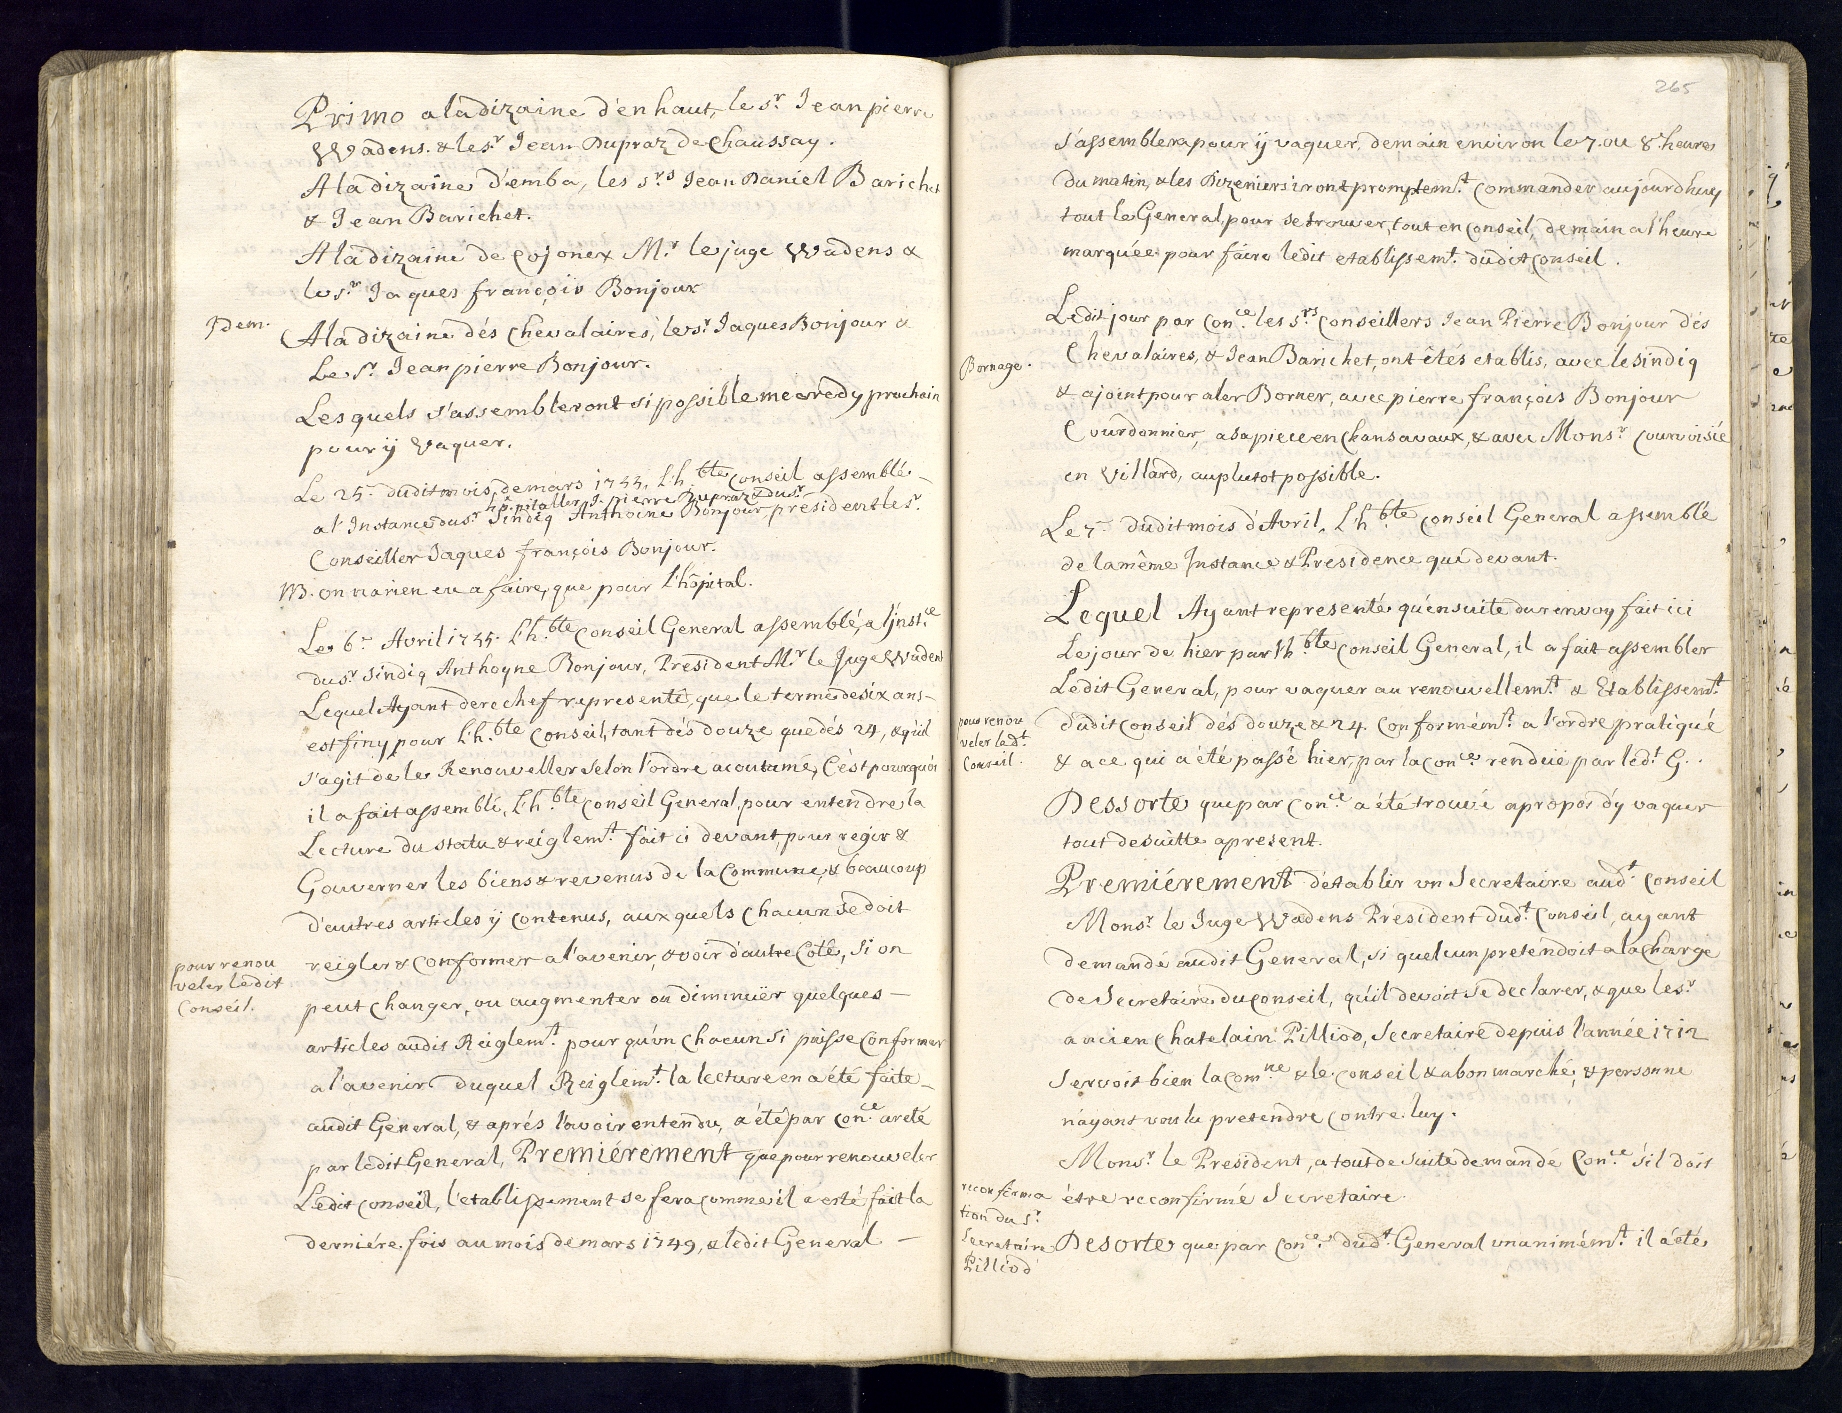 Primo a la dizaine d'en haut, le sr. Jean pierre
Wadens. & le sr. Jean Dupraz de Chaussay.
A la dizaine d'emba, les srs Jean Daniel Barichet
& Jean Barichet.
A la dizaine de Cojonex Mr. le juge Wadens &
le sr. Jaques françois Bonjour
Idem.
A la dizaine dés Chevalaires, le sr. Jaques Bonjour &
Le sr. Jean pierre Bonjour.
Lesquels s'assembleront si possible mecredy prochain
pour ÿ vaquer.
Le 25e. dudit mois de mars 1755. l'h.ble Conseil assemblé
hôpitaller J. pierre Dupraz & du sr.
a l'Instance du sr. Sindiq Anthoine Bonjour president le sr.
Conseiller Jaques françois Bonjour.
NB. on n'a rien eu a faire, que pour l'hôpital.
Le 6e Avril 1755. l'h.ble Conseil General assemblé, a l'jnst.ce
du sr. Sindiq Anthoyne Bonjour, President Mr. le Juge Wadens
Lequel Ayant derechef representé, que le terme de six ans
est finy pour l'h.ble Conseil, tant dés douze que dés 24, & qu'il
s'agit de le Renouveller selon l'ordre acoutumé, C'est pourquoi
il a fait assemblé, l'h.ble Conseil General, pour entendre la
Lecture du statu & reiglem.t fait ci devant, pour regir &
Gouverner les biens & revenus de la Commune, & beaucoup
d'autres articles ÿ contenus, aux quels chacun se doit
pour renou
veler ledit
Conseil.
reigler & conformer a l'avenir, & voir d'autre Coté, Si on
peut changer, ou augmenter ou diminuër quelques
articles audit Reiglem.t pour qu'un chacun si puisse conformer
a l'avenir duquel Reiglem.t la lecture en a été faite
audit General, & aprés l'avoir entendu, a été par Con.ce areté
par ledit General, Premiérement que pour renouveler
Ledit Conseil, l'etablissement se fera comme il a esté fait la
derniére fois au mois de mars 1749, & ledit General
265
s'assemblera pour ÿ vaquer, demain environ le 7. ou 8e. heures
du matin, & les Dizeniers iront promptem.t Commander aujourdhuy
tout le General, pour se trouver, tout en Conseil, demain a l'heure
marquée pour faire ledit etablissem.t dudit Conseil.
Ledit jour par Con.ce les srs. Conseillers Jean Pierre Bonjour dés
Bornage.
Chevalaires, & Jean Barichet, ont êtés etablis, avec le sindiq
& ajoint pour aler Borner, avec pierre françois Bonjour
Courdonnier, a sa piece en Chansavaux, & avec Monsr. Courvoisié
en Villard, au plutot possible.
Le 7e dudit mois d'Avril, l'h.ble Conseil General assemblé
de la même Instance & Presidence que devant.
Lequel Ayant representé qu'ensuite du renvoy fait ici
Le jour de hier par l'h.ble Conseil General, il a fait assembler
Ledit General, pour vaquer au renouvellem.t & Etablissem.t
pour renou
veler led.t
Conseil.
dudit Conseil dés douze & 24. Conformém.t a l'ordre pratiqué
& a ce qui a été passé hier, par la Con.ce renduë, par led.t G.
Dessorte que par Con.ce a été trouvé apropos d'y vaquer
tout desuitte apresent.
Premiérement d'etablir un Secretaire aud.t Conseil
Monsr. le Juge Wadens President dud.t Conseil, ayant
demandé audit General, si quelcun pretendoit a la charge
de Secretaire du Conseil, qu'il devoit se declarer, & que le sr.
ancien Chatelain Pilliod, Secretaire depuis l'année 1712
Servoit bien la Com.ne & le Conseil & a bon marché, & personne
n'ayant voulu pretendre contre luy.
Monsr. le President, a tout de suite demandé Con.ce s'il doit
reconfirma
tion du sr.
Secretaire
Pilliod
être reconfirmé Secretaire.
Desorte que par Con.ce dud.t General unanimém.t il a été